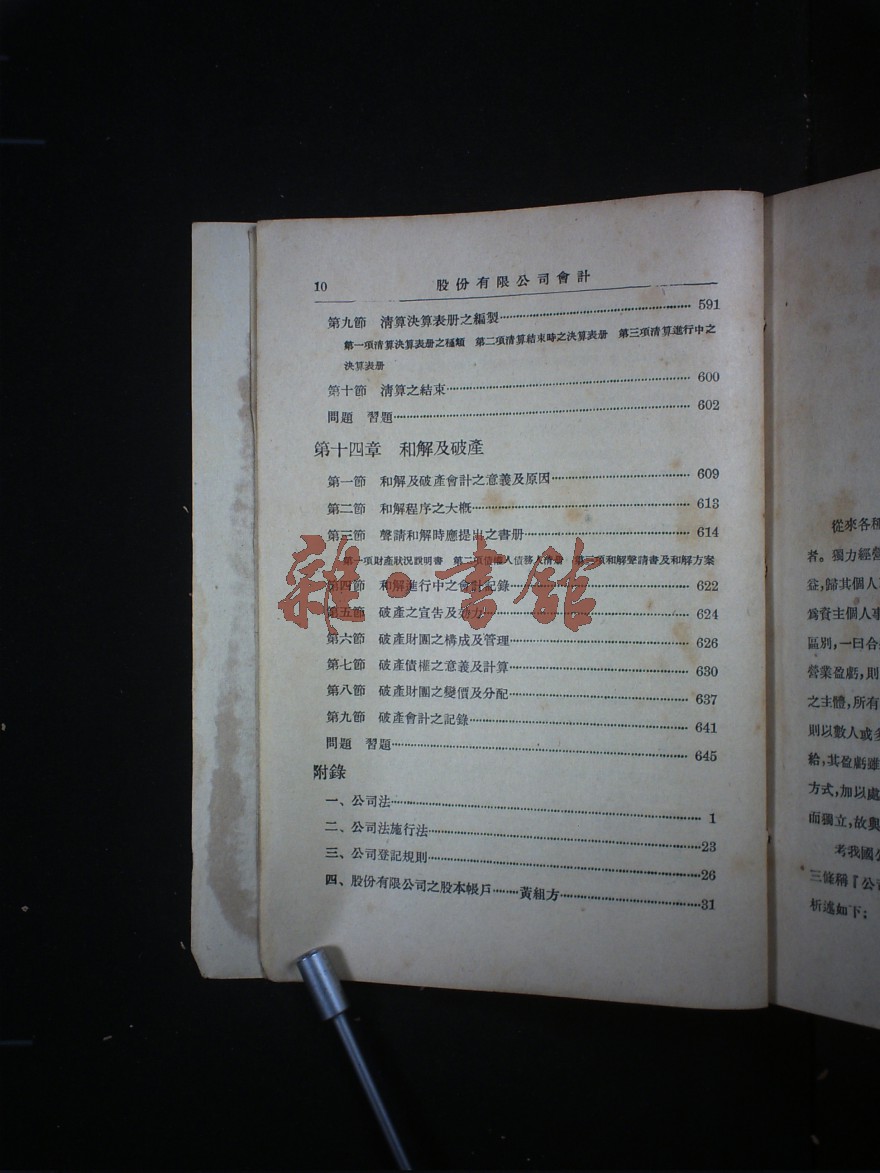 10 股份有限公司會計
第九節 清算決算表册之編製 591
第一項清算決算表册之種類 第二項清算結束時之決算表册 第三項清算進行中之
決算表册
第十節 清算之結束 600
問題 習題 602
第十四章 和解及破產
第一節 和解及破產會計之意義及原因 609
第二節 和解程序之大概 613
第三節 聲請和解時應提出之書册 614
第一項財產狀況說明書 第二項債權人債務人清册 第三項和解聲請書及和解方案
第四節 和解進行中之會計記錄 622
第五節 破產之宣告及効力 624
第六節 破產財團之構成及管理 626
第七節 破產債權之意義及計算 630
第八節 破產財團之變價及分配 637
第九節 破產會計之記錄 641
問題 習題 645
附錄
一、公司法 1
二、公司法施行法 23
三、公司登記規則 26
四、股份有限公司之股本帳戶 黃組方 31
雜·書館
從來各種
者。獨力經營
益,歸其個人
爲資主個人事
區別,一曰合
營業盈虧,則
之主體,所有
則以數人或多
給,其盈虧雖
方式,加以處
面獨立,故與
考我國公
三條稱『公司
析述如下: